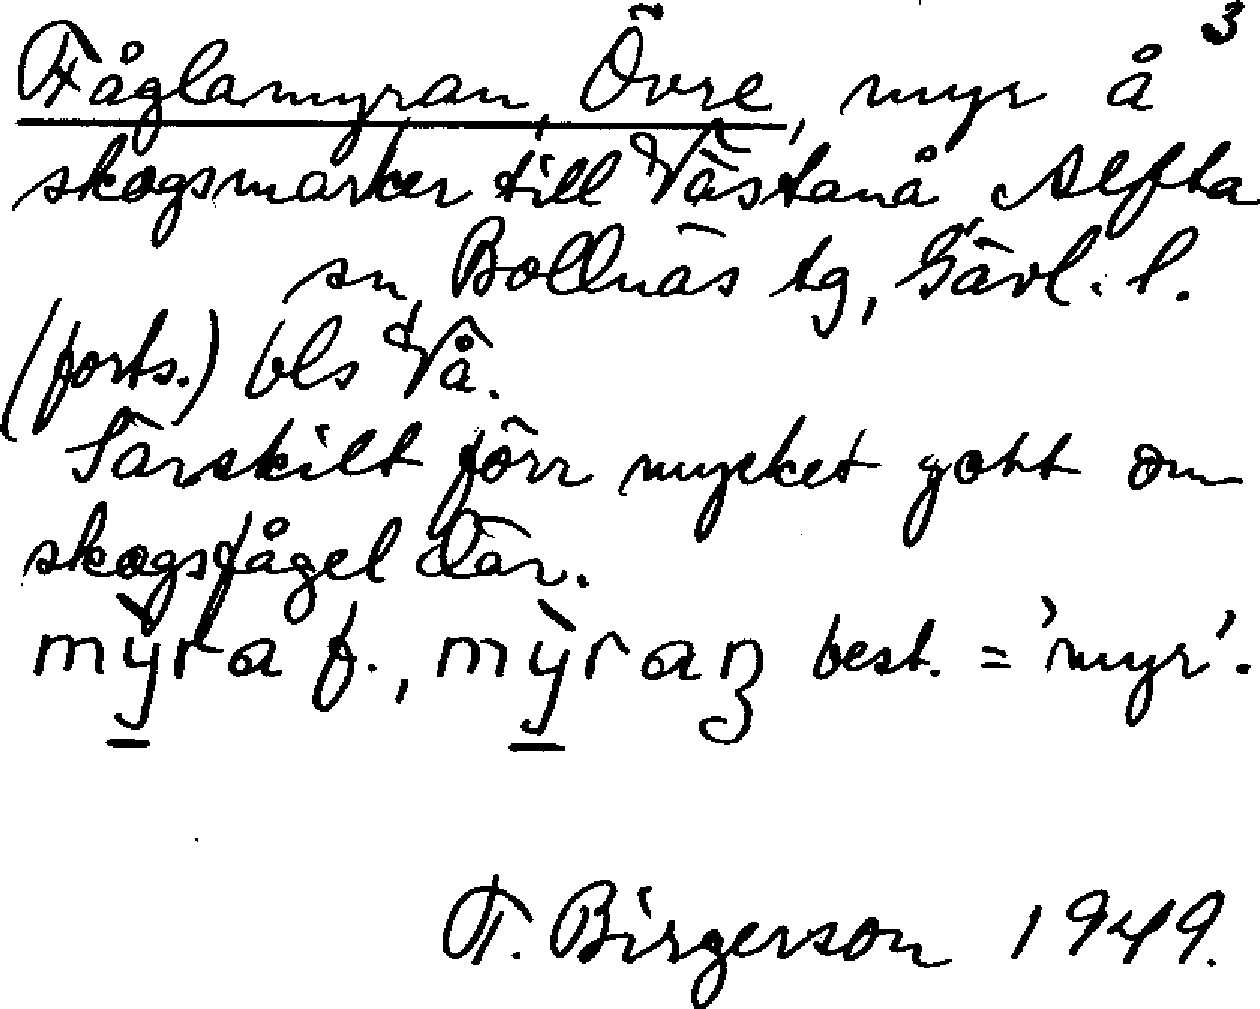 3
Fåglamyran, Övre, myr å
skogsmarker till Västanå Alfta
sn, Bollnäs tg, Gävl. l.
(forts.) bls Vå.
Särskilt förr mycket gott om
skogsfågel där.
mỳra f., mỳraṇ best. = 'myr'.
F. Birgerson 1949.